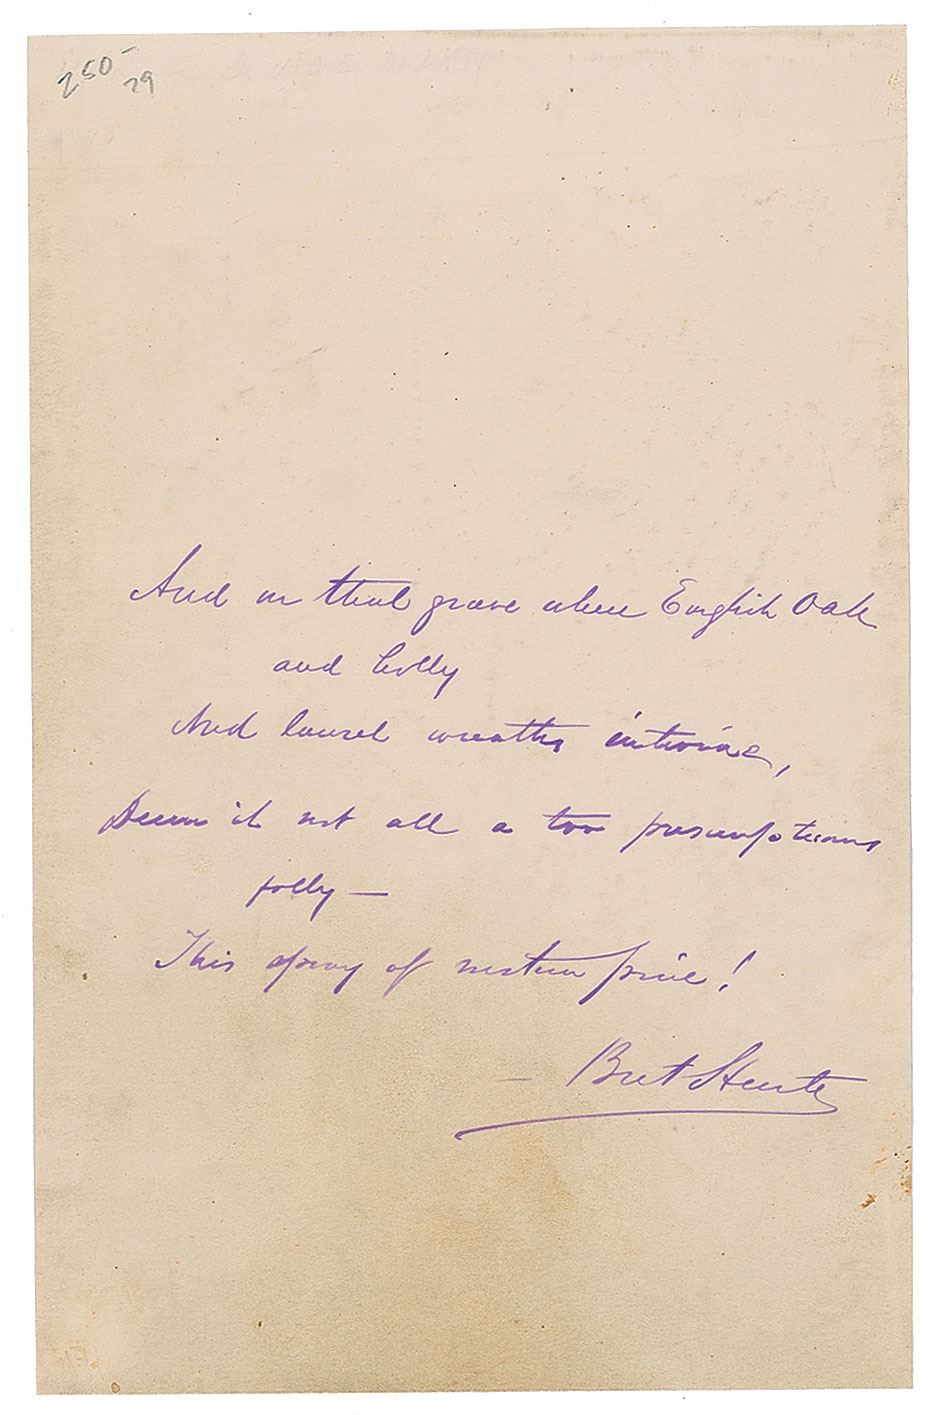 250-
29
And on that grave where English Oak
and holly
And laurel wreaths intwine,
Deem it not all a too presumptuous
folly —
This spray of western pine!
— Bret Harte